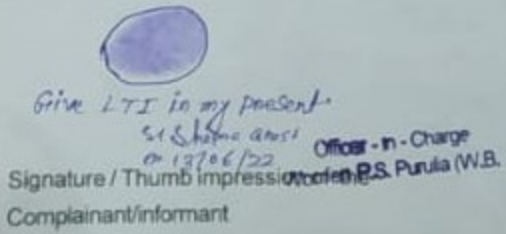 Give LTI in my present.
SI Shoma
on 12/06/22
Officer - In - Charge
Women P.S. Purulia (W.B.
Signature / Thumb impression of the
Complainant/informant